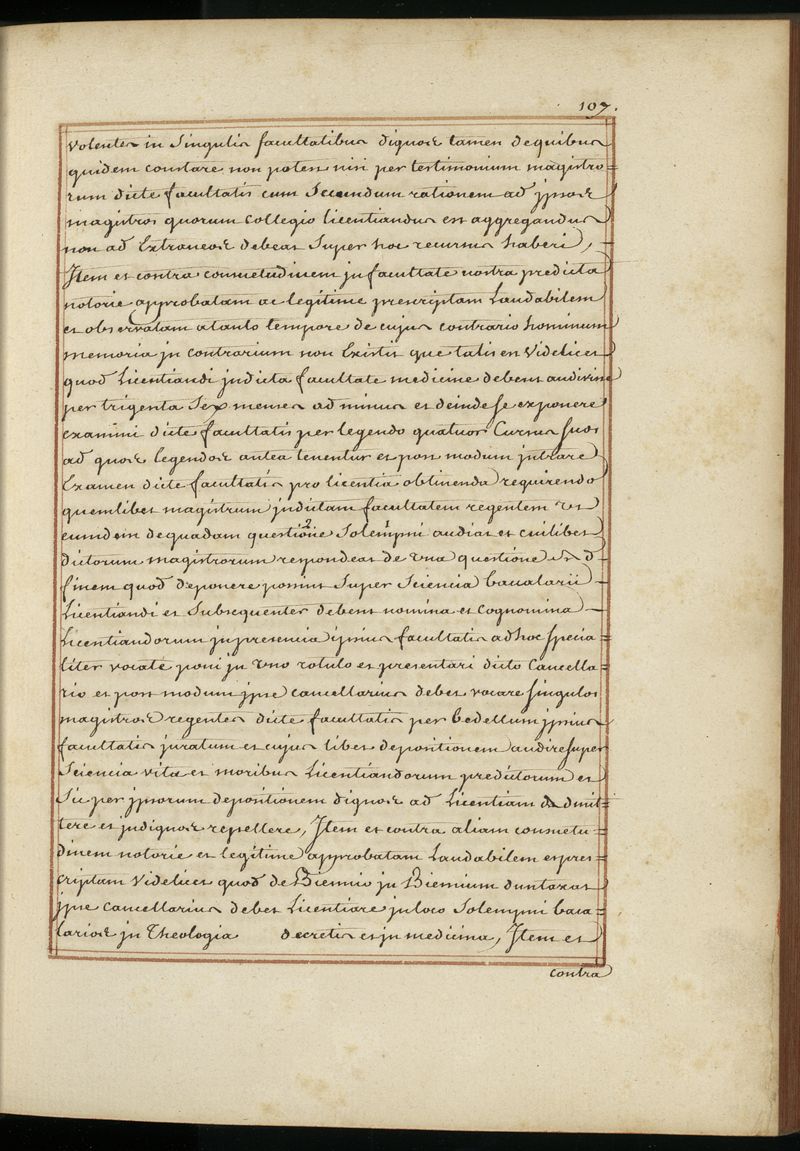 107.
volentes in Singulis facultatibus dignos tamen de quibus
quidem constare non potest nisi per testimonium magistro=
rum dicte facultatis cum Secundum rationem ad jpsos
magistros quorum collegio licentiandus est aggregandus
non ad Extraneos debeat Super hoc recursus haberi, –
Jtem et contra consuetudinem jn facultate nostra predicta
notorie approbatam ac legitime prescriptam Laudabilem
et observatam a tanto tempore de cujus contrario hominum
memoria jn contrarium non Existit que talis est Videlicet
quod Licentiandi jn dicta facultate medicine debent audivisse
per triginta Sex menses ad minus et deinde se exponere
examini dicte facultatis per legendo quatuor Cursus suos
ad quos legendos antea tenentur et post modum jntrare
Examen dicte facultatis pro licentia obtinenda requirendo
quemlibet magistrum jn dictam facultatem regentem ut
eumdem de quadam questione Solempni audiat et cuilibet
dictorum magistrorum respondeat de una questione ad
finem quod deponere possint Super Sciencia bacalarii –
Licentiandi et Subsequenter debent nomina et cognomina –
Licentiandorum jn presencia ipsius facultatis ad hoc specia=
liter vocate poni jn uno rotulo et presentari dicto Cancella=
rio et post modum jpse cancellarius debet vocare singulos
magistros regentes dicte facultatis per bedellum jpsius
facultatis juratum et cujus libet depositionem audire super
Sciencia vita et moribus Licentiandorum predictorum et
Sic per jpsorum depositionem dignos ad Licentiam admit=
tere et jndignos repellere, Jtem et contra aliam consuetu=
dinem notorie et legitime approbatam Laudabilem et pres
criptam Videlicet quod de Biennio jn Biennium duntaxat
jpse cancellarius debet Licentiare jn loco Solempni baca=
larios jn Theologia decretis et jn medicina, Jtem et
contra